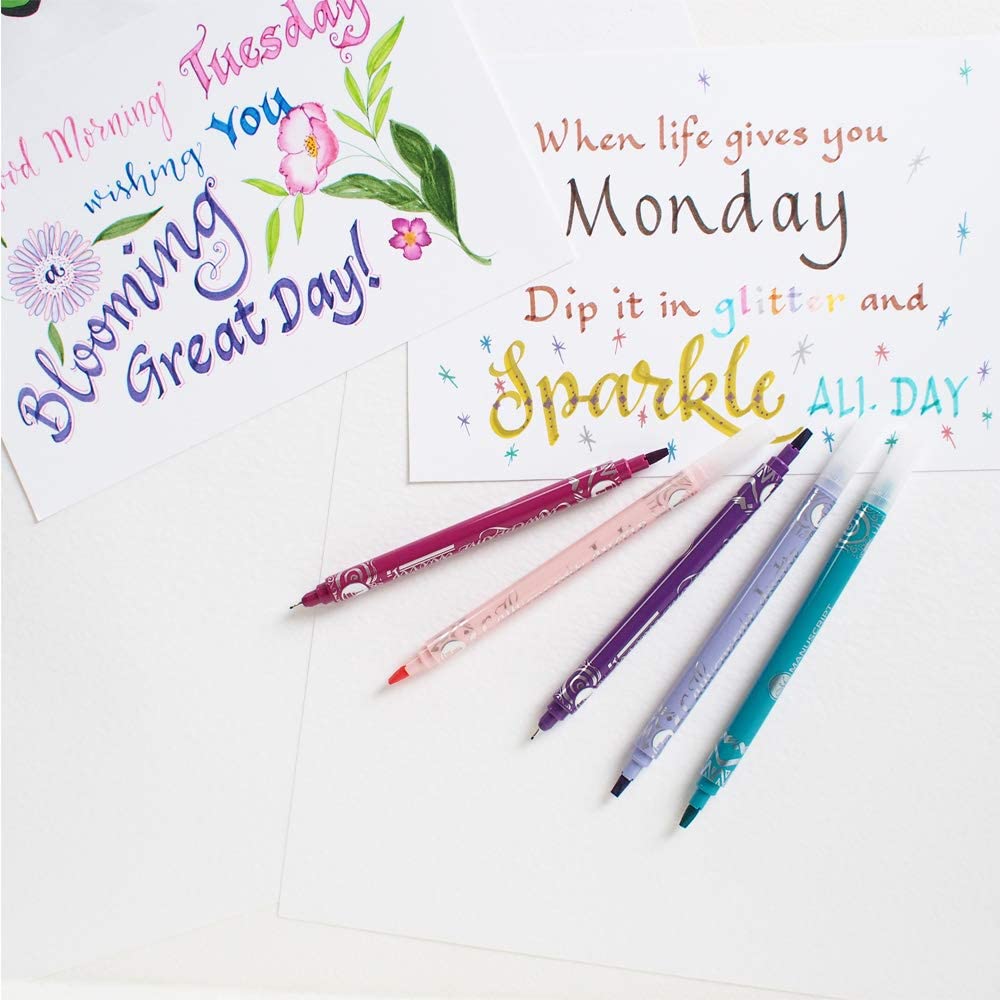 ood Morning Tuesday
wishing You
a
Blooming
Great Day!
When life gives you
Monday
Dip it in glitter and
Sparkle ALL DAY
MANUSCRIPT